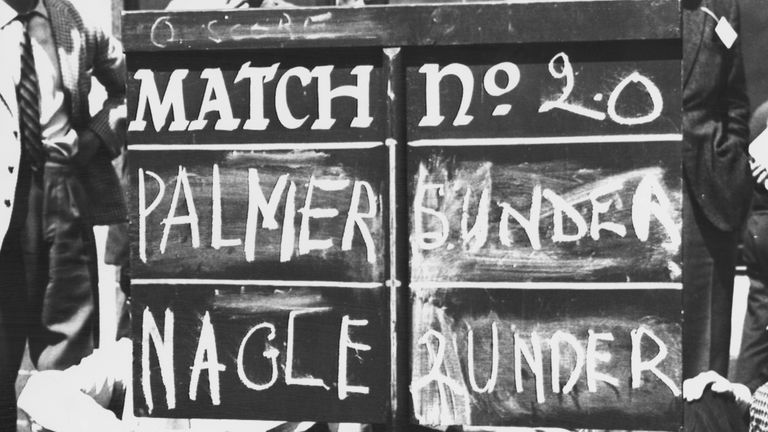 MATCH No. 20
PALMER 5.UNDER
NAGLE 2UNDER